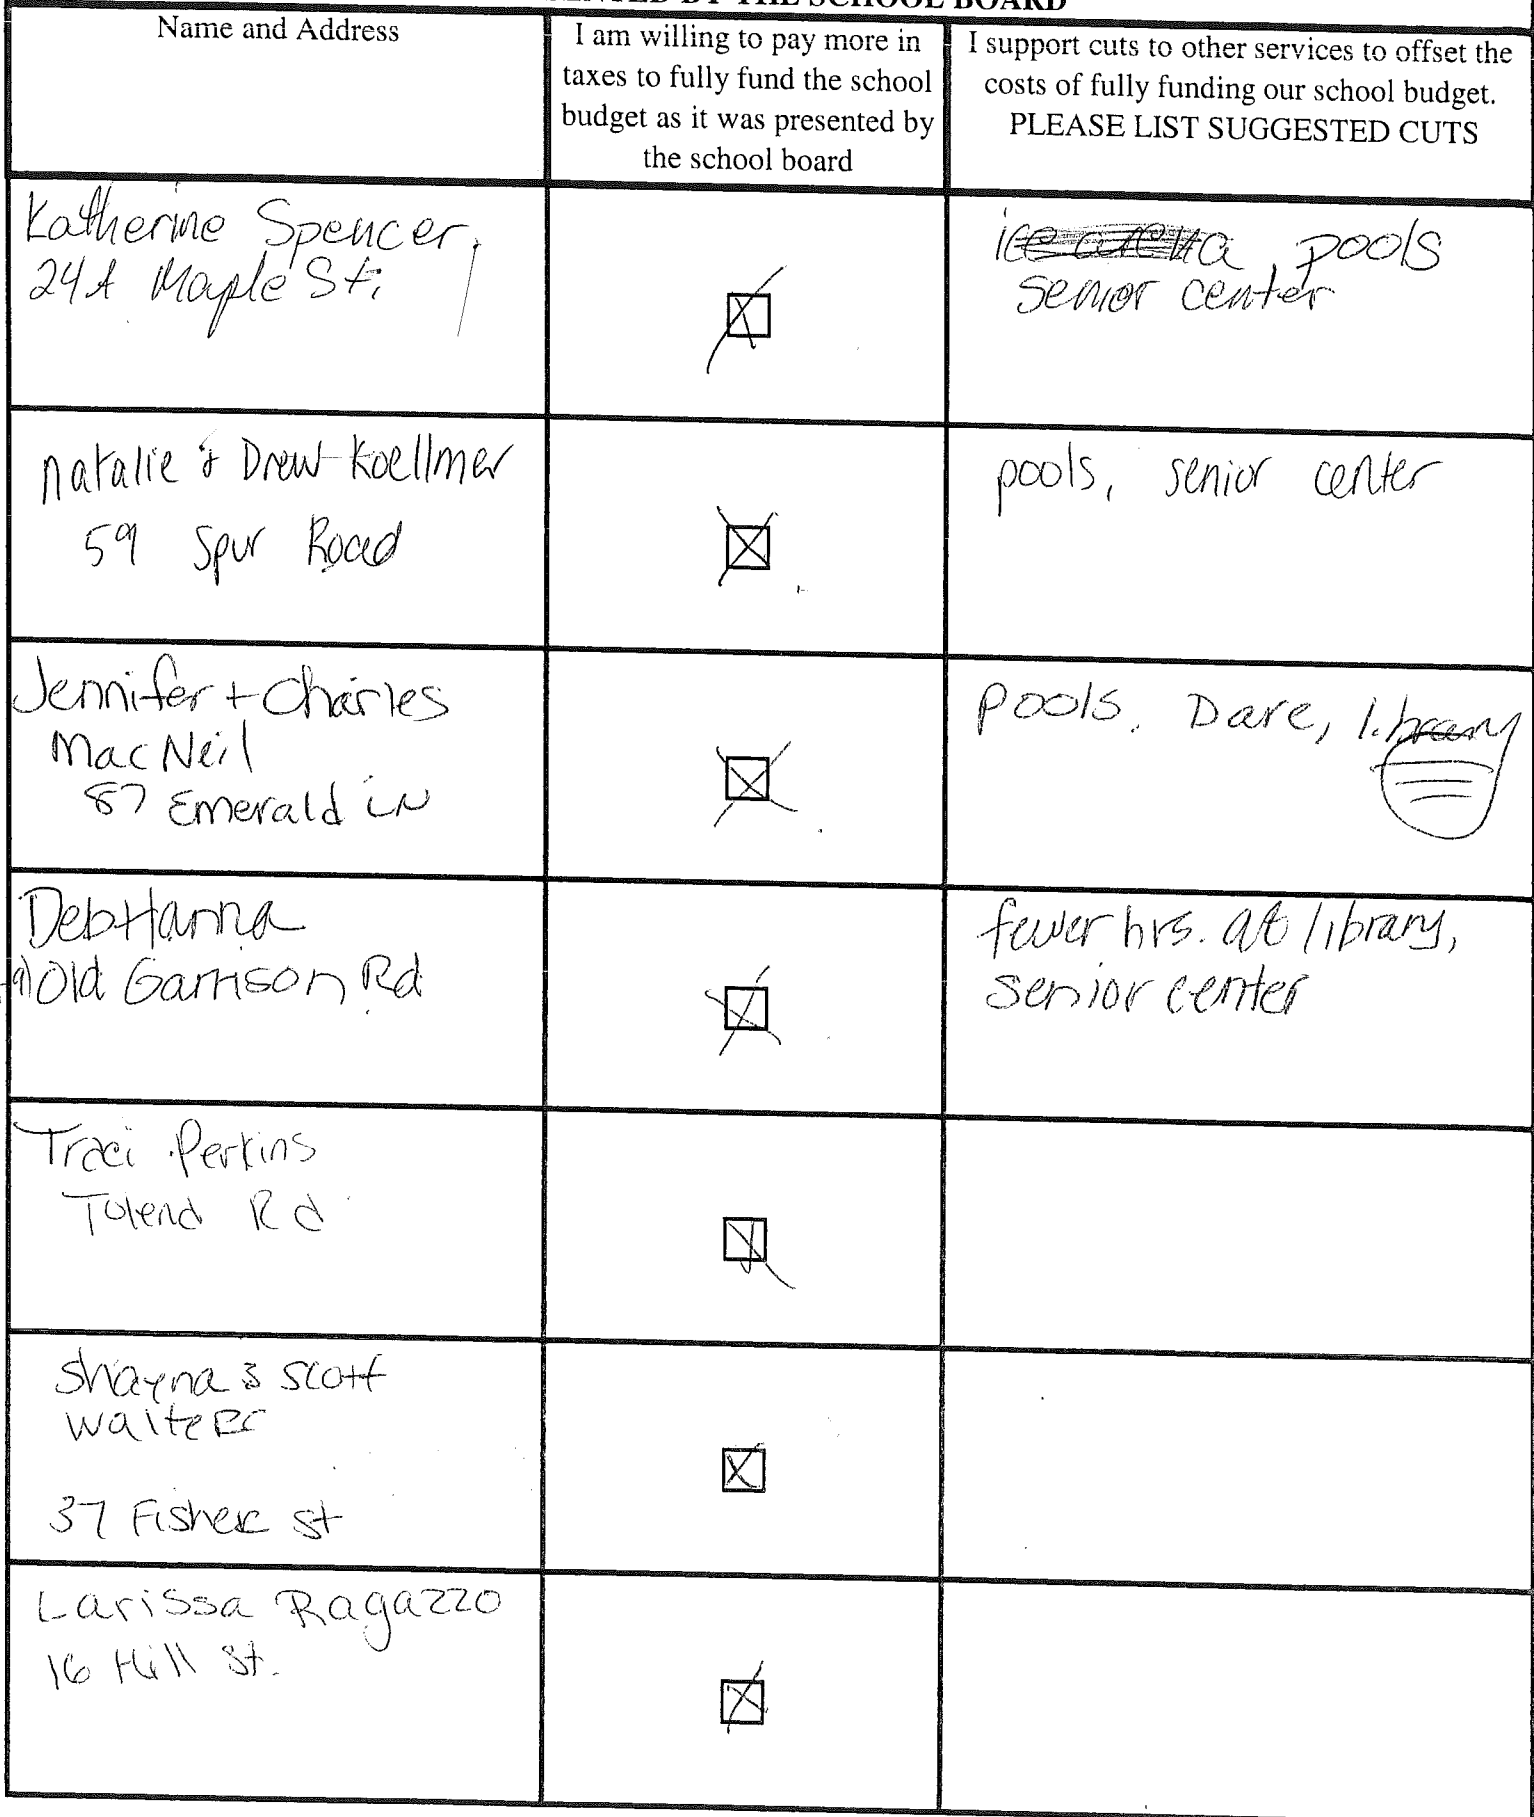 BY THE SCHOOL BOARD
Name and Address
I am willing to pay more in
taxes to fully fund the school
budget as it was presented by
the school board
I support cuts to other services to offset the
costs of fully funding our school budget.
PLEASE LIST SUGGESTED CUTS
Katherine Spencer,
24A Maple St.
ice arena, pools
senior center
natalie & Drew Koellmer
59 Spur Road
pools, senior center
Jennifer + Charles
MacNeil
87 Emerald LN
pools, Dare, library
Deb Hanna
Old Garrison Rd
fewer hrs. at library,
senior center
Traci Perkins
Tolend Rd
Shayna & Scott
Walters
37 Fisher St
Larissa Ragazzo
16 Hill St.